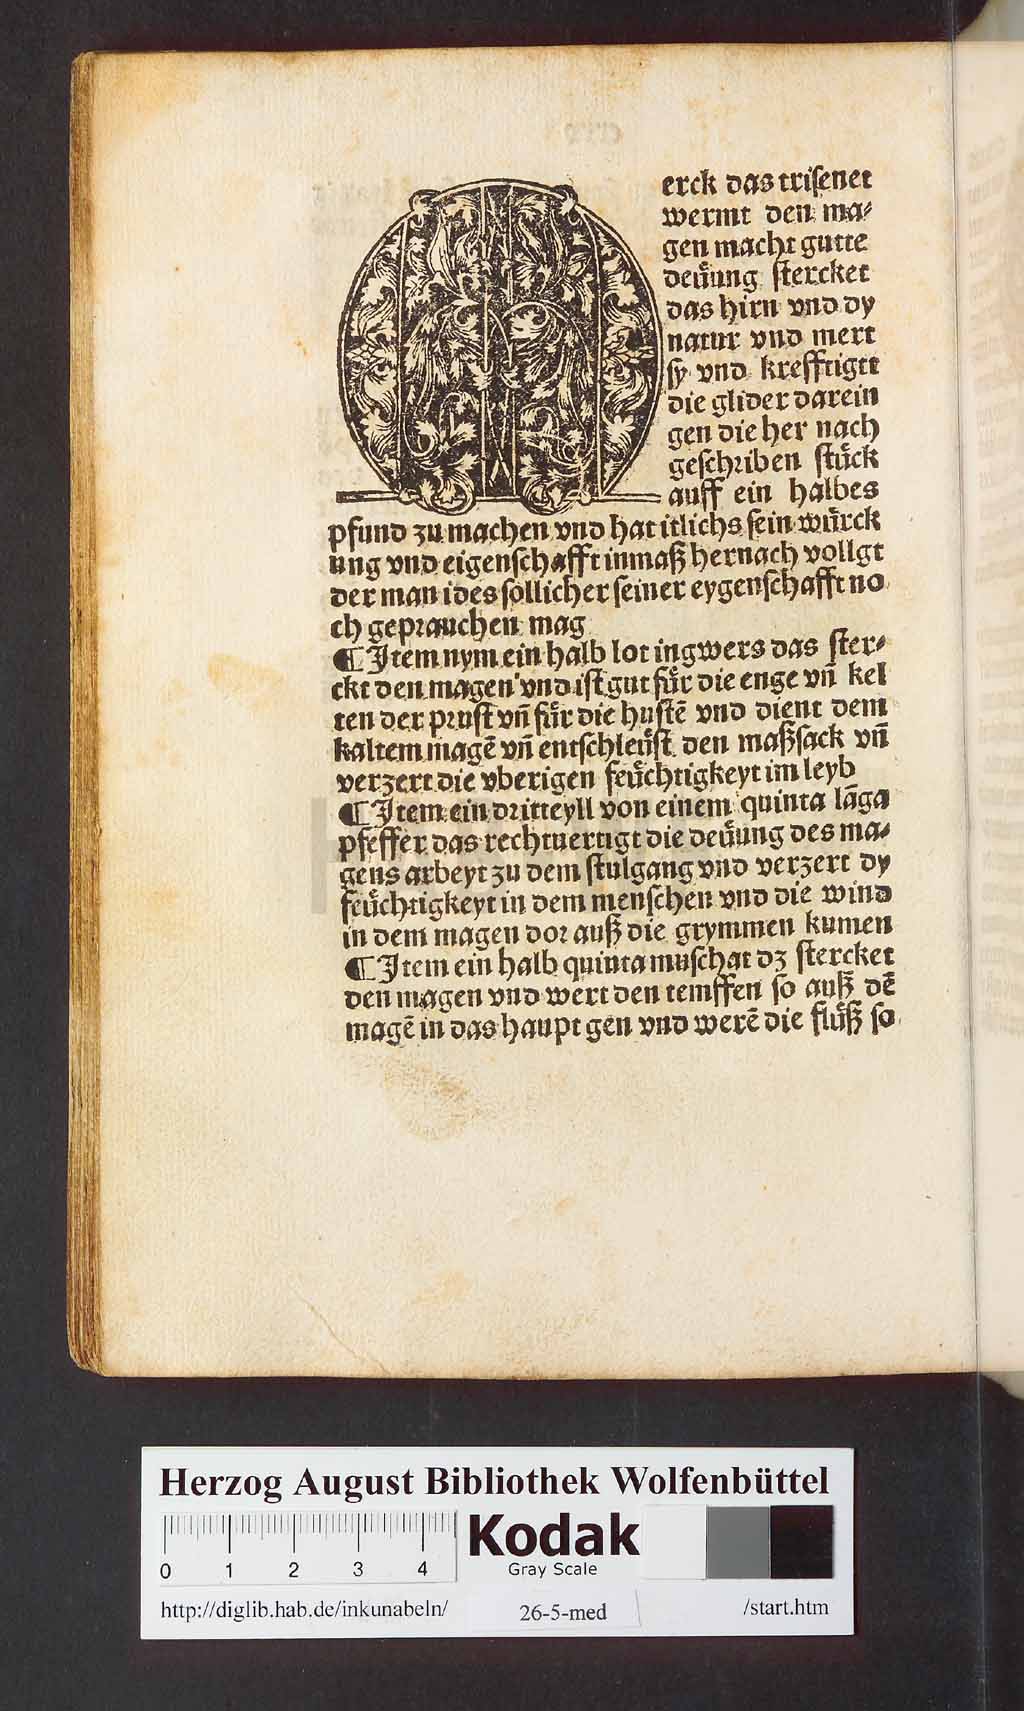 Merck das triſenet
wermt den ma⸗
gen macht gutte
deuͤung ſtercket
das hirn vnd dy
natur vnd mert
ſy vnd krefftigtt
die glider darein
gen die her nach
geſchꝛiben ſtuͤck
auff ein halbes
pfund zu machen vnd hat itlichs ſein wuͤrck
ung vnd eigenſchafft inmaß hernach vollgt
der man ides ſollicher ſeiner eygenſchafft no
ch gepꝛauchen mag
¶ Item nym ein halb lot ingwers das ſter⸗
ckt den magen vnd iſt gut fuͤr die enge vñ kel
ten der pꝛuſt vñ fuͤr die huſtē vnd dient dem
kaltem magē vñ entſchleuͤſt den maßſack vñ
verzert die vberigen feuͤchtigkeyt im leyb
¶ Item ein dꝛitteyll von einem quinta lāga
pfeffer das rechtuertigt die deuͤung des ma⸗
gens arbeyt zu dem ſtulgang vnd verzert dy
feuͤchtigkeyt in dem menſchen vnd die wind
in dem magen doꝛ auß die grymmen kumen
¶ Item ein halb quinta muſchat dz ſtercket
den magen vnd wert den temffen ſo auß dē
magē in das haupt gen vnd werē die fluͤß ſo
Herzog August Bibliothek Wolfenbüttel
0 1 2 3 4
Kodak
Gray Scale
http://diglib.hab.de/inkunabeln/ 26-5-med /start.htm